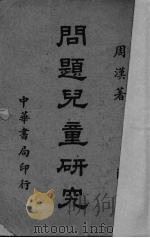 周漢著
問題兒童研究
中華書局印行
mtoou.info